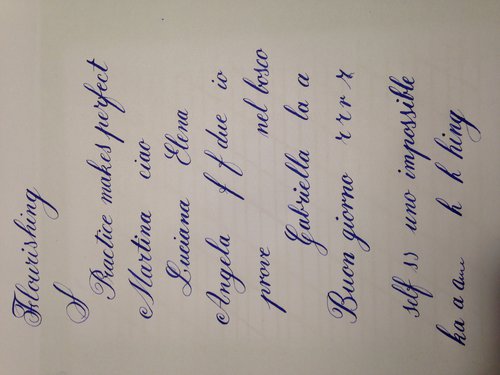 Flourishing
f
Practice makes perfect
Martina ciao
Luciana Elena
Angela f f due io
prove nel bosco
Gabriella la a
Buon giorno r r r r
self ss uno impossible
ha a a h h hing